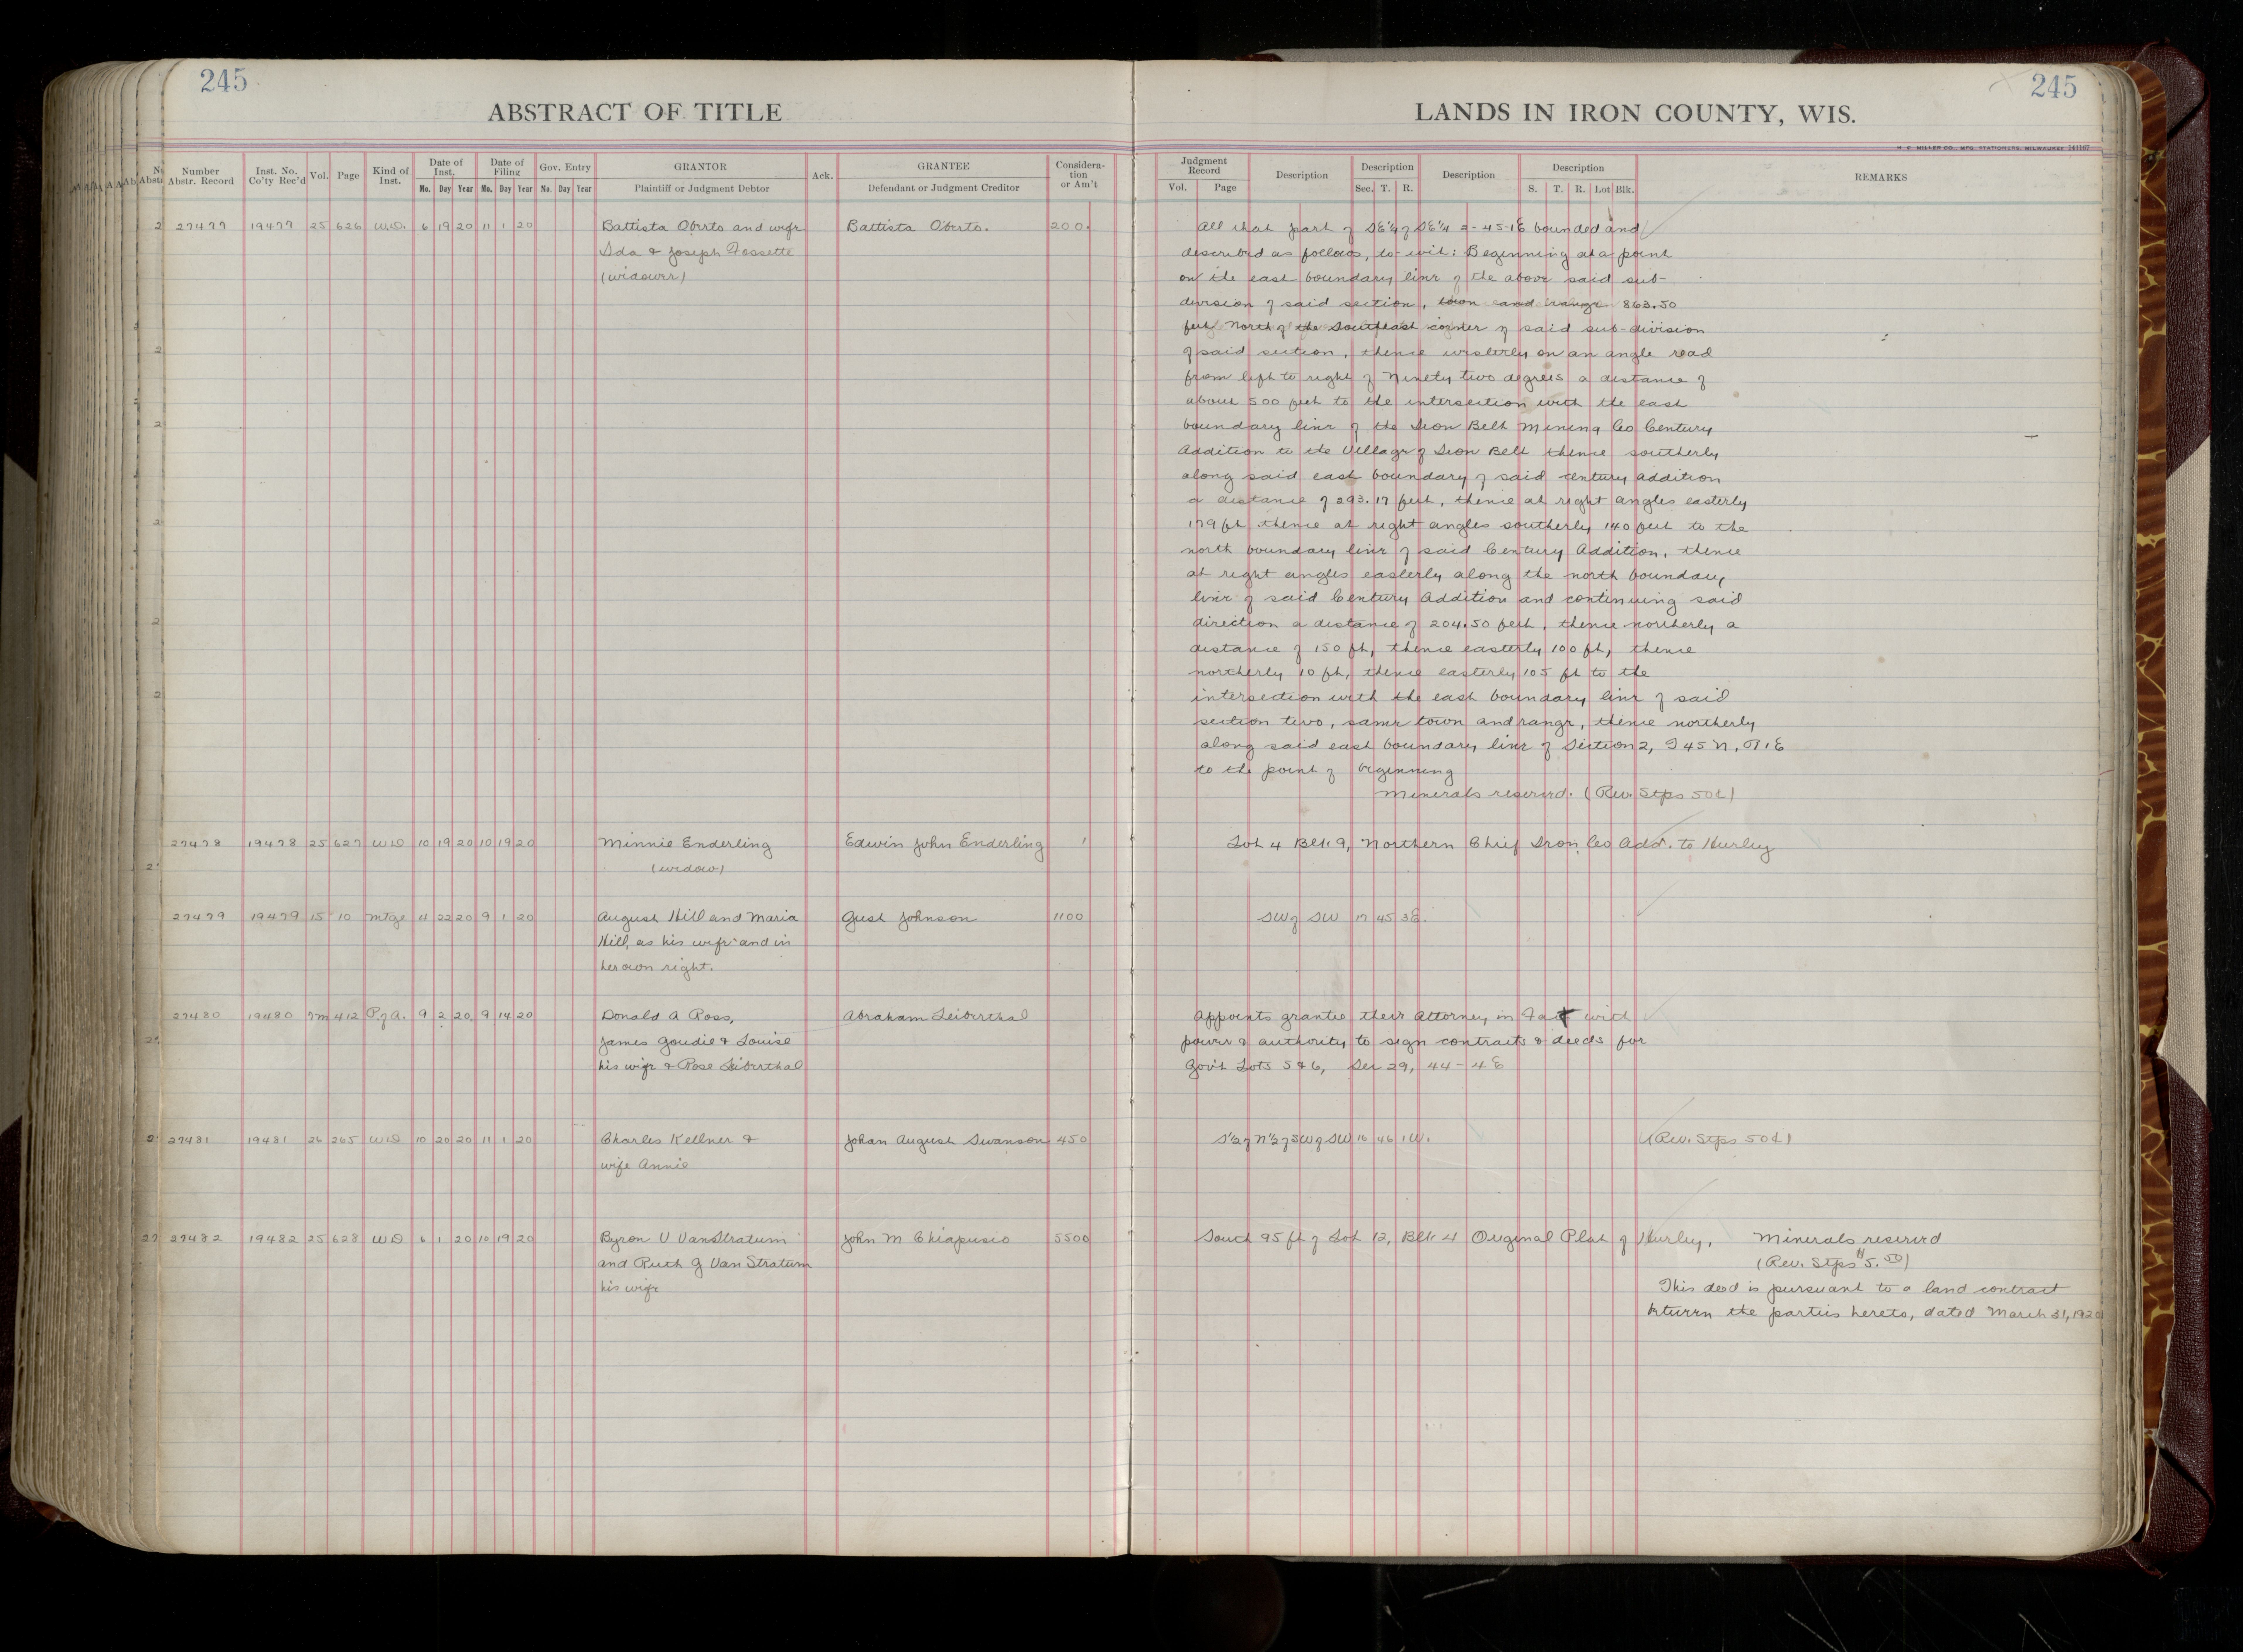 245
245
ABSTRACT OF TITLE
LANDS IN IRON COUNTY, WIS.
H. F. MILLER CO., MFG. STATIONERS, MILWAUKEE 141167
Number Abstr. Record | Inst. No. Co'ty Rec'd | Vol. | Page | Kind of Inst. | Date of Inst. Mo. Day Year | Date of Filing Mo. Day Year | Gov. Entry No. Day Year | GRANTOR Plaintiff or Judgment Debtor | Ack. | GRANTEE Defendant or Judgment Creditor | Considera-tion or Am't | Judgment Record Vol. Page | Description | Description Sec. T. R. | Description | Description S. T. R. Lot Blk. | REMARKS
27477 19477 25 626 W.D. 6 19 20 11 1 20 Battista Oberto and wife Battista Oberto. 200. All that part of SE¼ of SE¼ 2-45-1E bounded and
Ida & Joseph Fossette described as follows, to-wit: Beginning at a point
(widower) on the east boundary line of the above said sub-
division of said section, town and range 863.50
feet North of the Southeast corner of said sub-division
of said section, thence westerly on an angle read
from left to right of Ninety two degrees a distance of
about 500 feet to the intersection with the east
boundary line of the Iron Belt Mining Co Century
Addition to the Village of Iron Belt thence southerly
along said east boundary of said century addition
a distance of 293.17 feet, thence at right angles easterly
179 ft thence at right angles southerly 140 feet to the
north boundary line of said Century Addition, thence
at right angles easterly along the north boundary
line of said Century Addition and continuing said
direction a distance of 204.50 feet, thence northerly a
distance of 150 ft, thence easterly 100 ft, thence
northerly 10 ft, thence easterly 105 ft to the
intersection with the east boundary line of said
section two, same town and range, thence northerly
along said east boundary line of Section 2, T 45 N, R 1 E
to the point of beginning
Minerals reserved. (Rev. Stps 50¢)
27478 19478 25 627 WD 10 19 20 10 19 20 Minnie Enderling Edwin John Enderling 1 Lot 4 Blk 9, Northern Chief Iron Co Add. to Hurley
(widow)
27479 19479 15 10 Mtge 4 22 20 9 1 20 August Hill and Maria Gust Johnson 1100 SW of SW 17 45 3E.
Hill, as his wife and in
her own right.
27480 19480 7m 412 P. of A. 9 2 20 9 14 20 Donald A Ross, Abraham Leiberthal Appoints grantee their Attorney in Fact with
James Goudie & Louise power & authority to sign contracts & deeds for
his wife & Rose Leiberthal Gov't Lots 5 & 6, Sec 29, 44-4E
27481 19481 26 265 WD 10 20 20 11 1 20 Charles Kellner & Johan August Swanson 450 S½ of N½ of SW of SW 16 46 1W. (Rev. Stps 50¢)
wife Annie
27482 19482 25 628 WD 6 1 20 10 19 20 Byron V VanStratum John M Chiapusio 5500 South 95 ft of Lot 12, Blk 4 Original Plat of Hurley, Minerals reserved
and Ruth G Van Stratum (Rev. Stps 5.50)
his wife This deed is pursuant to a land contract
between the parties hereto, dated March 31, 1920